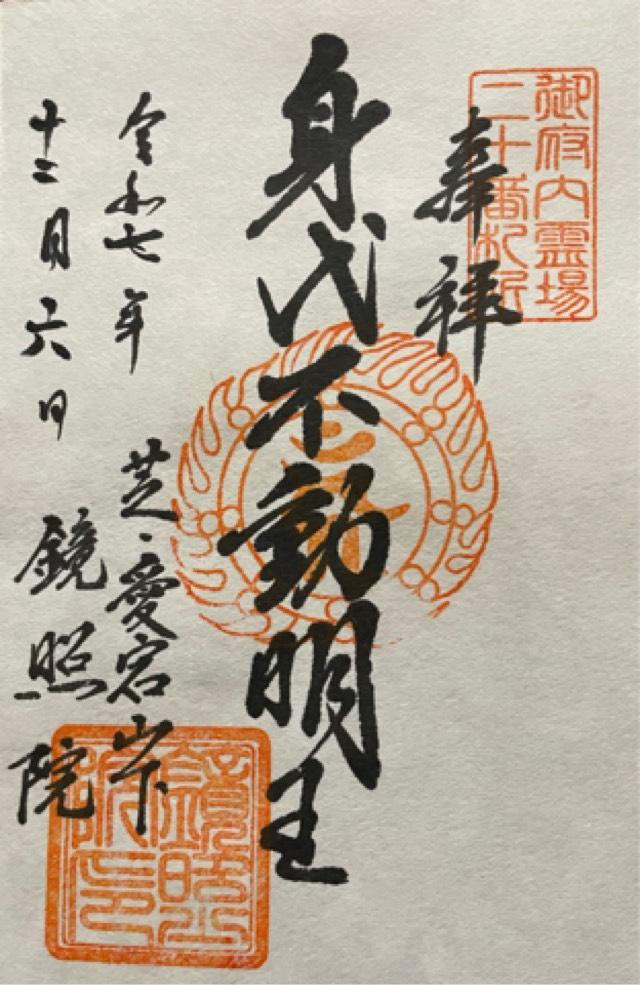 御府内霊場
二十番札所
奉拝
身代不動明王
令和七年
十二月六日
芝・愛宕山下
鏡照院
鏡照
院印